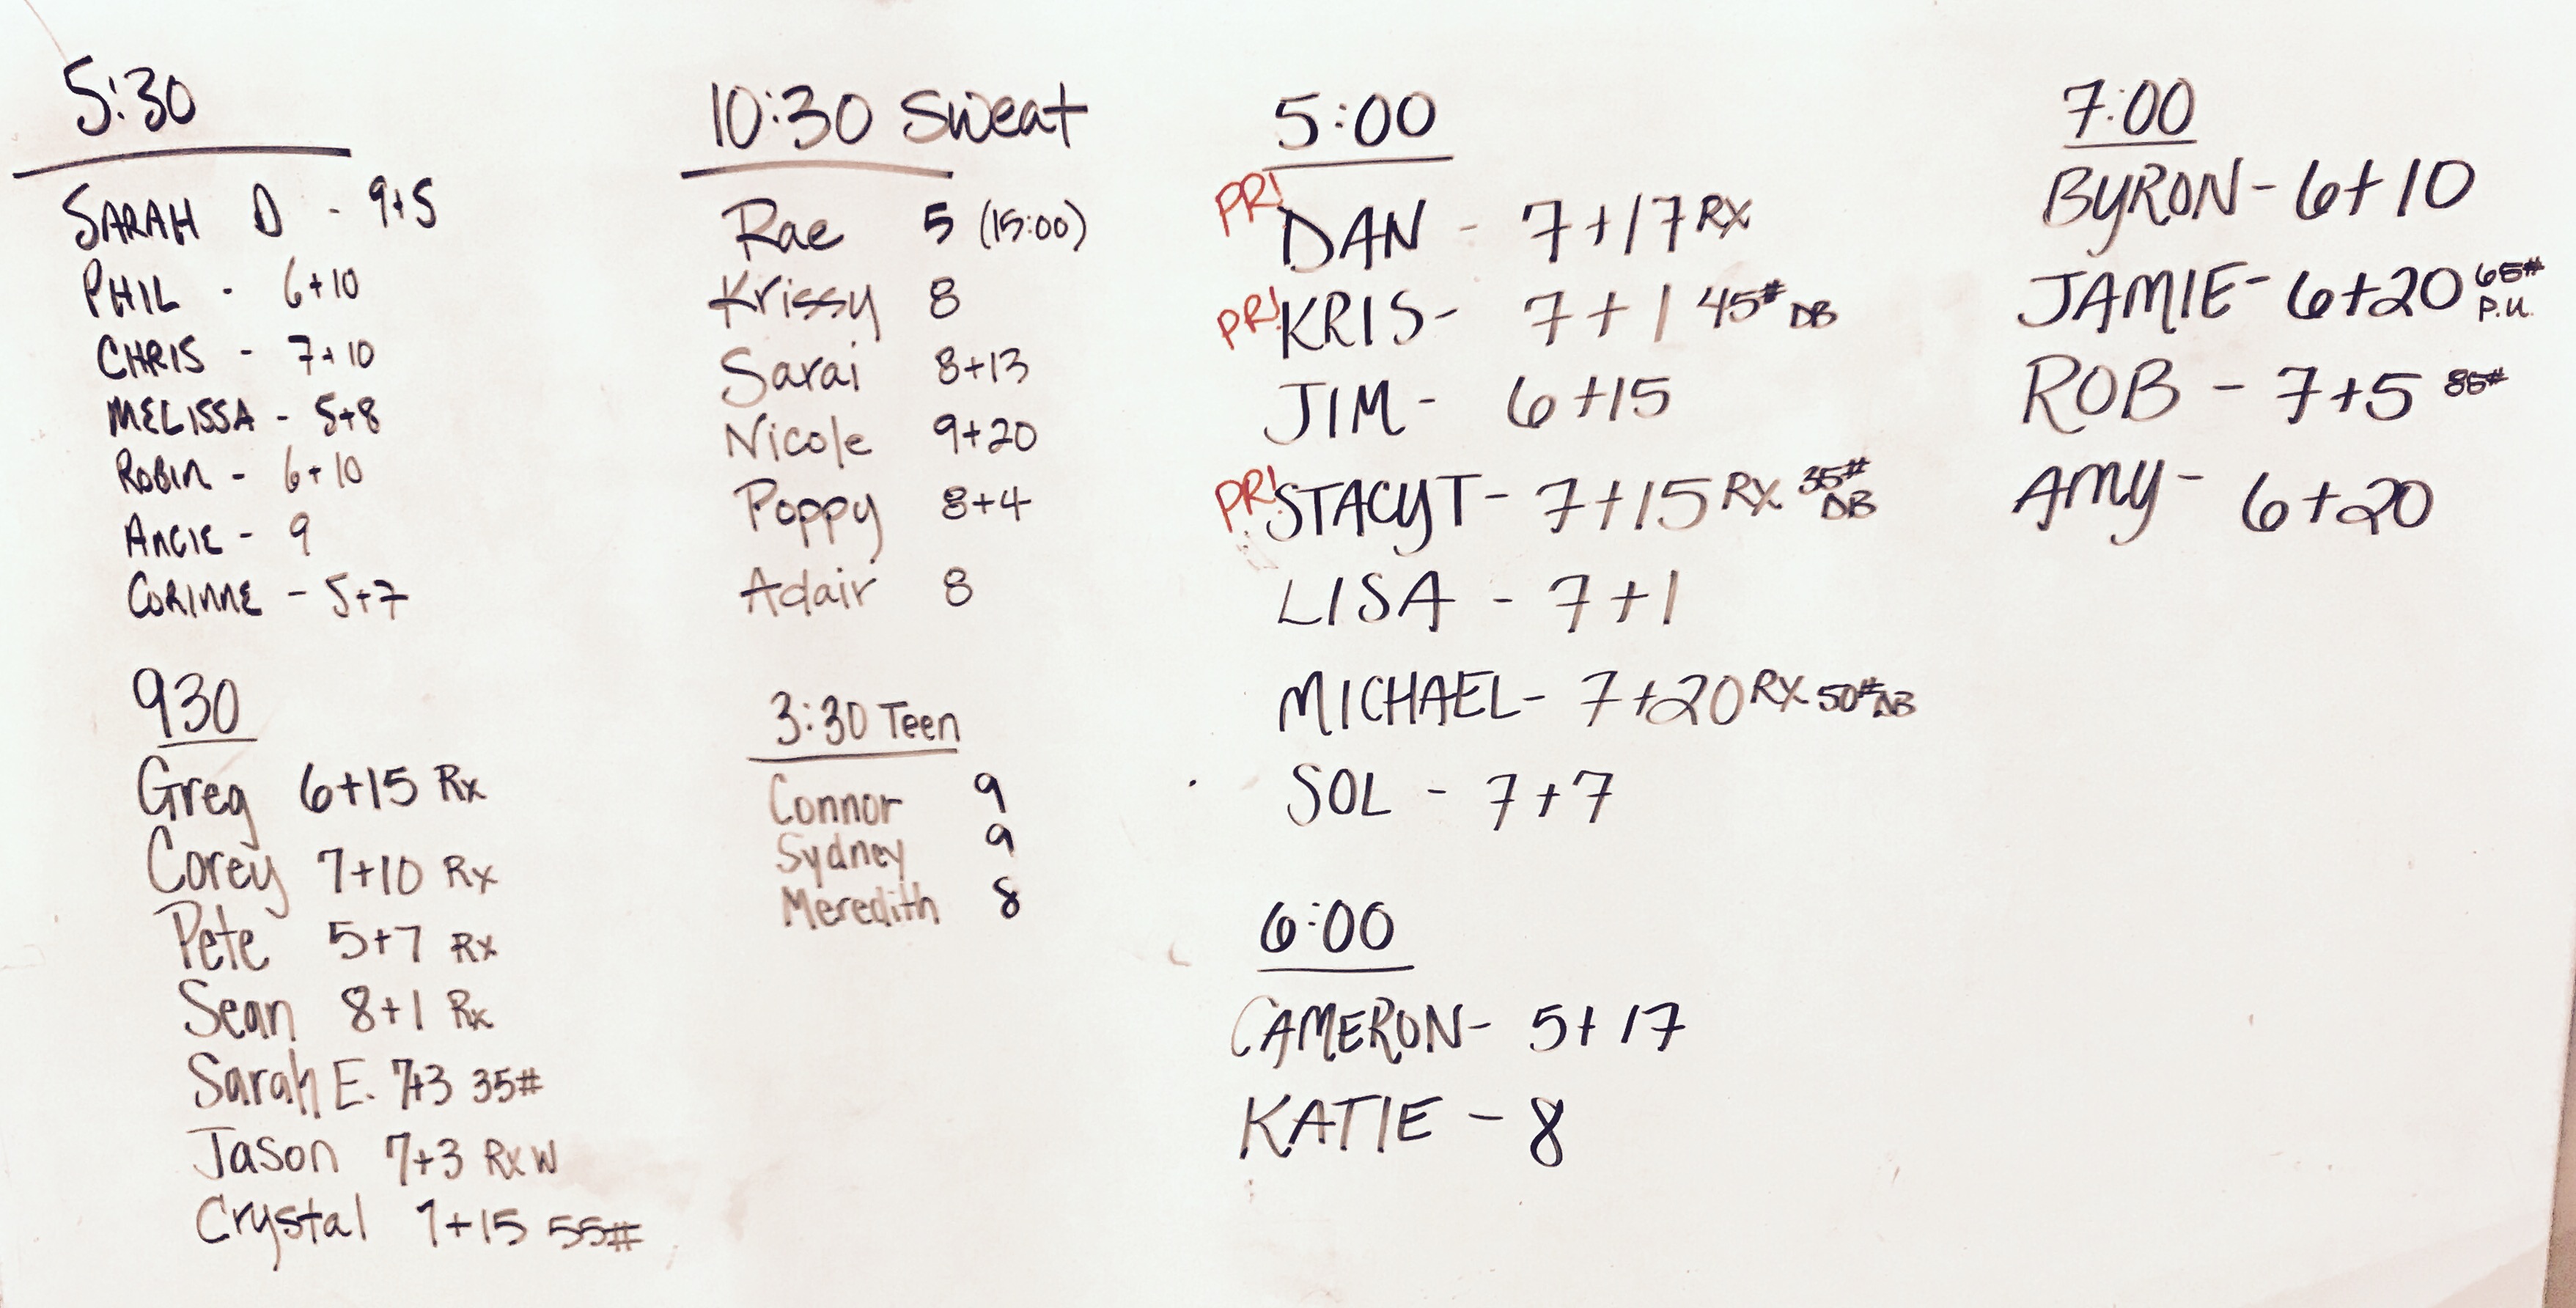 5:30
SARAH D - 9+5
PHIL - 6+10
CHRIS - 7+10
MELISSA - 5+8
ROBIN - 6+10
ANGIE - 9
CORINNE - 5+7
930
Greg 6+15 Rx
Corey 7+10 Rx
Pete 5+7 Rx
Sean 8+1 Rx
Sarah E. 7+3 35#
Jason 7+3 Rx W
Crystal 7+15 55#
10:30 Sweat
Rae 5 (15:00)
Krissy 8
Sarai 8+13
Nicole 9+20
Poppy 8+4
Adair 8
3:30 Teen
Connor 9
Sydney 9
Meredith 8
5:00
PR! DAN - 7+17 RX
PR! KRIS - 7+1 45# DB
JIM - 6+15
PR! STACY T - 7+15 RX 35# DB
LISA - 7+1
MICHAEL - 7+20 RX 50# DB
SOL - 7+7
6:00
CAMERON - 5+17
KATIE - 8
7:00
BYRON - 6+10
JAMIE - 6+20 65# P.U.
ROB - 7+5 85#
AMY - 6+20